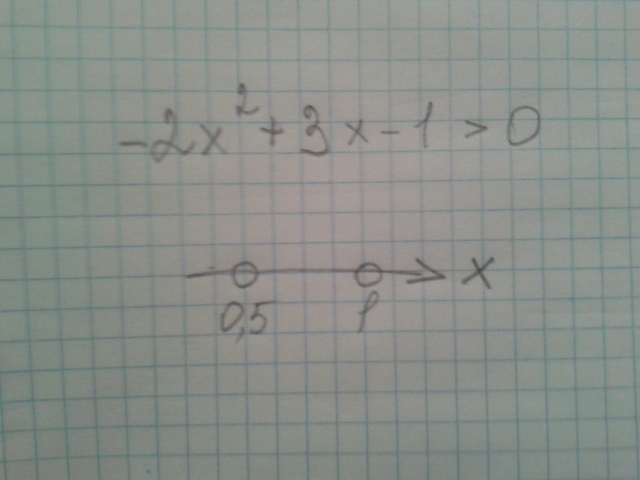 -2x² + 3x - 1 > 0
x
0,5 1